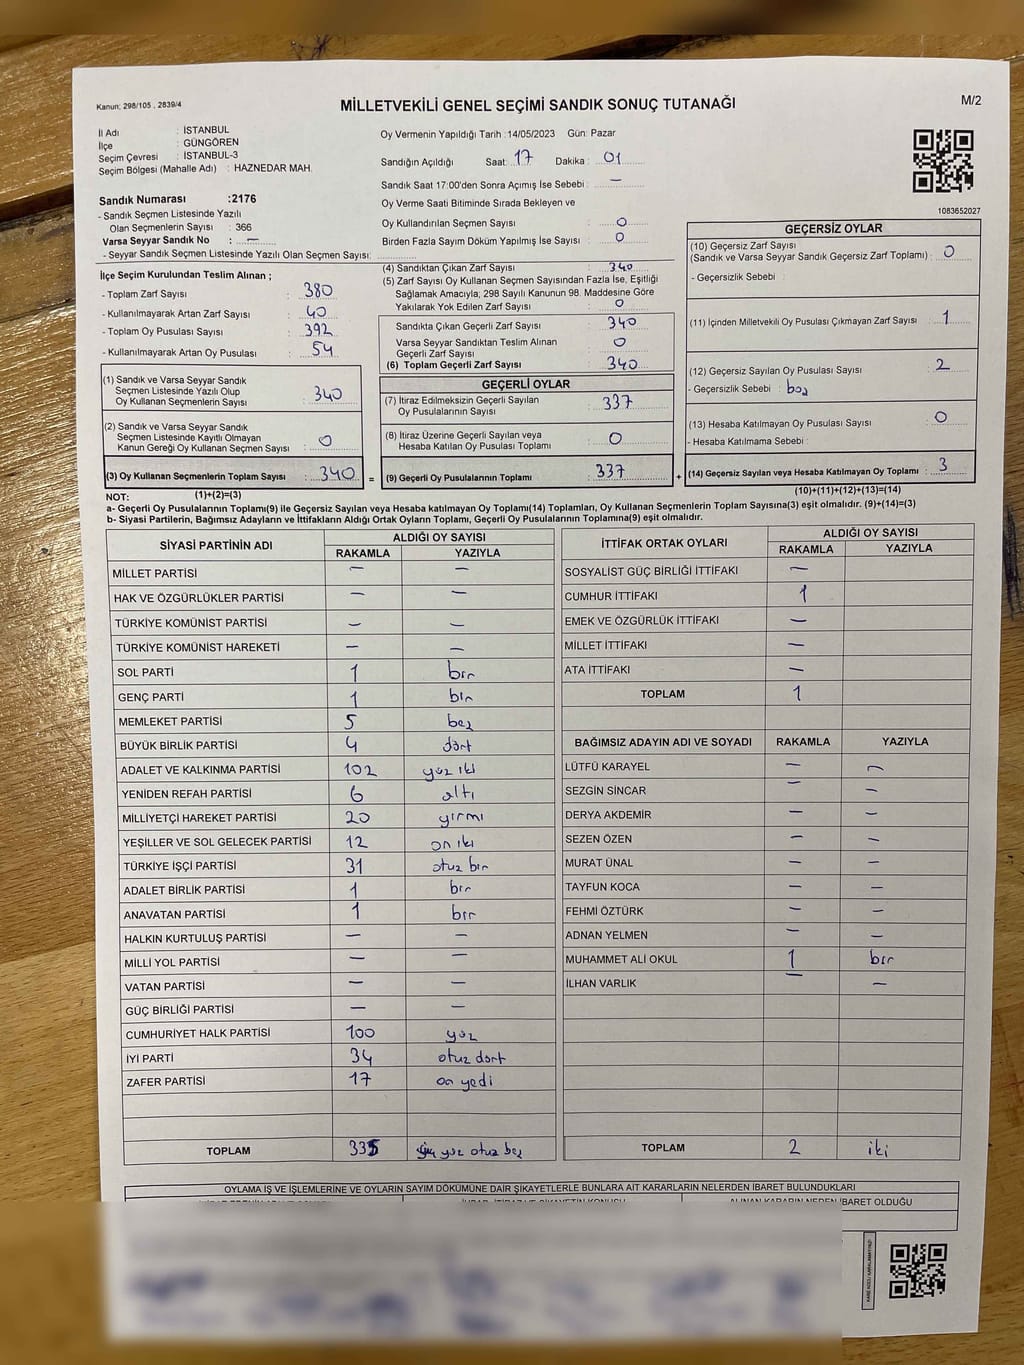 Kanun; 298/105 , 2839/4
MİLLETVEKİLİ GENEL SEÇİMİ SANDIK SONUÇ TUTANAĞI
M/2
İl Adı : İSTANBUL
İlçe : GÜNGÖREN
Seçim Çevresi : İSTANBUL-3
Seçim Bölgesi (Mahalle Adı) : HAZNEDAR MAH.
Sandık Numarası :2176
- Sandık Seçmen Listesinde Yazılı
Olan Seçmenlerin Sayısı : 366
Varsa Seyyar Sandık No : —
- Seyyar Sandık Seçmen Listesinde Yazılı Olan Seçmen Sayısı:
Oy Vermenin Yapıldığı Tarih :14/05/2023 Gün: Pazar
Sandığın Açıldığı Saat: 17 Dakika : 01
Sandık Saat 17:00'den Sonra Açımış İse Sebebi : —
Oy Verme Saati Bitiminde Sırada Bekleyen ve
Oy Kullandırılan Seçmen Sayısı : 0
Birden Fazla Sayım Döküm Yapılmış İse Sayısı : 0
1083652027
İlçe Seçim Kurulundan Teslim Alınan ;
- Toplam Zarf Sayısı : 380
- Kullanılmayarak Artan Zarf Sayısı : 40
- Toplam Oy Pusulası Sayısı : 392
- Kullanılmayarak Artan Oy Pusulası : 54
(1) Sandık ve Varsa Seyyar Sandık
Seçmen Listesinde Yazılı Olup
Oy Kullanan Seçmenlerin Sayısı : 340
(2) Sandık ve Varsa Seyyar Sandık
Seçmen Listesinde Kayıtlı Olmayan
Kanun Gereği Oy Kullanan Seçmen Sayısı : 0
(3) Oy Kullanan Seçmenlerin Toplam Sayısı : 340 =
(1)+(2)=(3)
(4) Sandıktan Çıkan Zarf Sayısı : 340
(5) Zarf Sayısı Oy Kullanan Seçmen Sayısından Fazla İse, Eşitliği
Sağlamak Amacıyla; 298 Sayılı Kanunun 98. Maddesine Göre
Yakılarak Yok Edilen Zarf Sayısı : 0
Sandıkta Çıkan Geçerli Zarf Sayısı : 340
Varsa Seyyar Sandıktan Teslim Alınan
Geçerli Zarf Sayısı : 0
(6) Toplam Geçerli Zarf Sayısı : 340
GEÇERLİ OYLAR
(7) İtiraz Edilmeksizin Geçerli Sayılan
Oy Pusulalarının Sayısı : 337
(8) İtiraz Üzerine Geçerli Sayılan veya
Hesaba Katılan Oy Pusulası Toplamı : 0
(9) Geçerli Oy Pusulalarının Toplamı : 337 +
GEÇERSİZ OYLAR
(10) Geçersiz Zarf Sayısı
(Sandık ve Varsa Seyyar Sandık Geçersiz Zarf Toplamı) : 0
- Geçersizlik Sebebi :
(11) İçinden Milletvekili Oy Pusulası Çıkmayan Zarf Sayısı : 1
(12) Geçersiz Sayılan Oy Pusulası Sayısı : 2
- Geçersizlik Sebebi : boş
(13) Hesaba Katılmayan Oy Pusulası Sayısı : 0
- Hesaba Katılmama Sebebi :
(14) Geçersiz Sayılan veya Hesaba Katılmayan Oy Toplamı : 3
(10)+(11)+(12)+(13)=(14)
NOT:
a- Geçerli Oy Pusulalarının Toplamı(9) ile Geçersiz Sayılan veya Hesaba katılmayan Oy Toplamı(14) Toplamları, Oy Kullanan Seçmenlerin Toplam Sayısına(3) eşit olmalıdır. (9)+(14)=(3)
b- Siyasi Partilerin, Bağımsız Adayların ve İttifakların Aldığı Ortak Oyların Toplamı, Geçerli Oy Pusulalarının Toplamına(9) eşit olmalıdır.
SİYASİ PARTİNİN ADI ALDIĞI OY SAYISI
RAKAMLA YAZIYLA
MİLLET PARTİSİ — —
HAK VE ÖZGÜRLÜKLER PARTİSİ — —
TÜRKİYE KOMÜNİST PARTİSİ — —
TÜRKİYE KOMÜNİST HAREKETİ — —
SOL PARTİ 1 bir
GENÇ PARTİ 1 bir
MEMLEKET PARTİSİ 5 beş
BÜYÜK BİRLİK PARTİSİ 4 dört
ADALET VE KALKINMA PARTİSİ 102 yüz iki
YENİDEN REFAH PARTİSİ 6 altı
MİLLİYETÇİ HAREKET PARTİSİ 20 yirmi
YEŞİLLER VE SOL GELECEK PARTİSİ 12 on iki
TÜRKİYE İŞÇİ PARTİSİ 31 otuz bir
ADALET BİRLİK PARTİSİ 1 bir
ANAVATAN PARTİSİ 1 bir
HALKIN KURTULUŞ PARTİSİ — —
MİLLİ YOL PARTİSİ — —
VATAN PARTİSİ — —
GÜÇ BİRLİĞİ PARTİSİ — —
CUMHURİYET HALK PARTİSİ 100 yüz
İYİ PARTİ 34 otuz dört
ZAFER PARTİSİ 17 on yedi
TOPLAM 335 üç yüz otuz beş
İTTİFAK ORTAK OYLARI ALDIĞI OY SAYISI
RAKAMLA YAZIYLA
SOSYALİST GÜÇ BİRLİĞİ İTTİFAKI —
CUMHUR İTTİFAKI 1
EMEK VE ÖZGÜRLÜK İTTİFAKI —
MİLLET İTTİFAKI —
ATA İTTİFAKI —
TOPLAM 1
BAĞIMSIZ ADAYIN ADI VE SOYADI RAKAMLA YAZIYLA
LÜTFÜ KARAYEL — —
SEZGİN SİNCAR — —
DERYA AKDEMİR — —
SEZEN ÖZEN — —
MURAT ÜNAL — —
TAYFUN KOCA — —
FEHMİ ÖZTÜRK — —
ADNAN YELMEN — —
MUHAMMET ALİ OKUL 1 bir
İLHAN VARLIK — —
TOPLAM 2 iki
OYLAMA İŞ VE İŞLEMLERİNE VE OYLARIN SAYIM DÖKÜMÜNE DAİR ŞİKAYETLERLE BUNLARA AİT KARARLARIN NELERDEN İBARET BULUNDUKLARI
ALINAN KARARIN NEDEN İBARET OLDUĞU